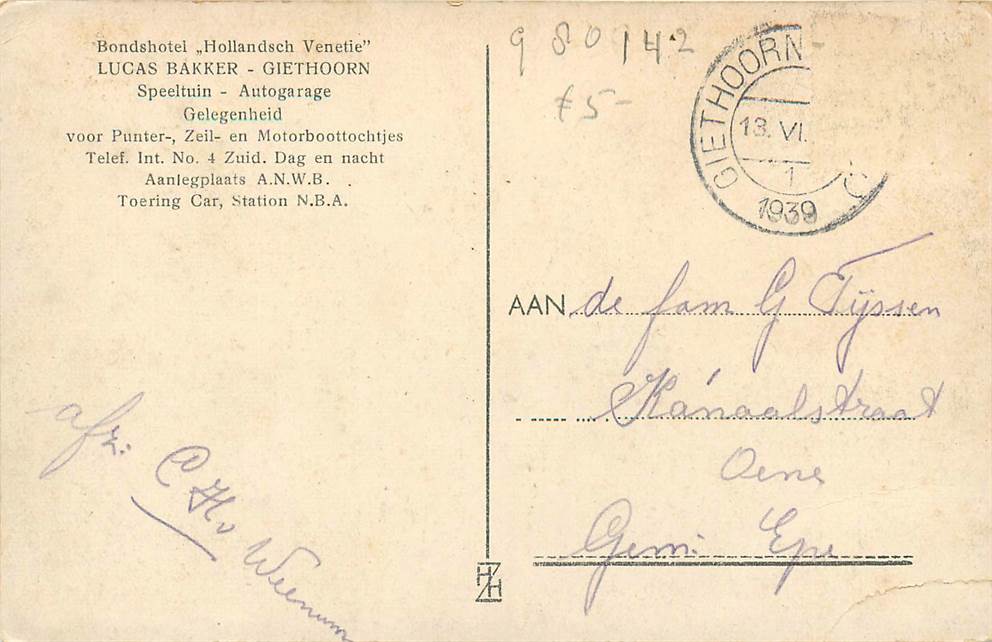 Bondshotel „Hollandsch Venetie”
LUCAS BAKKER - GIETHOORN
Speeltuin - Autogarage
Gelegenheid
voor Punter-, Zeil- en Motorboottochtjes
Telef. Int. No. 4 Zuid. Dag en nacht
Aanlegplaats A.N.W.B.
Toering Car, Station N.B.A.
afz:
C H v Weenum
980142
£5-
GIETHOORN
13. VI.
1
1939
AAN de fam G Tijssen
Kanaalstraat
Oene
Gem: Epe
HZH